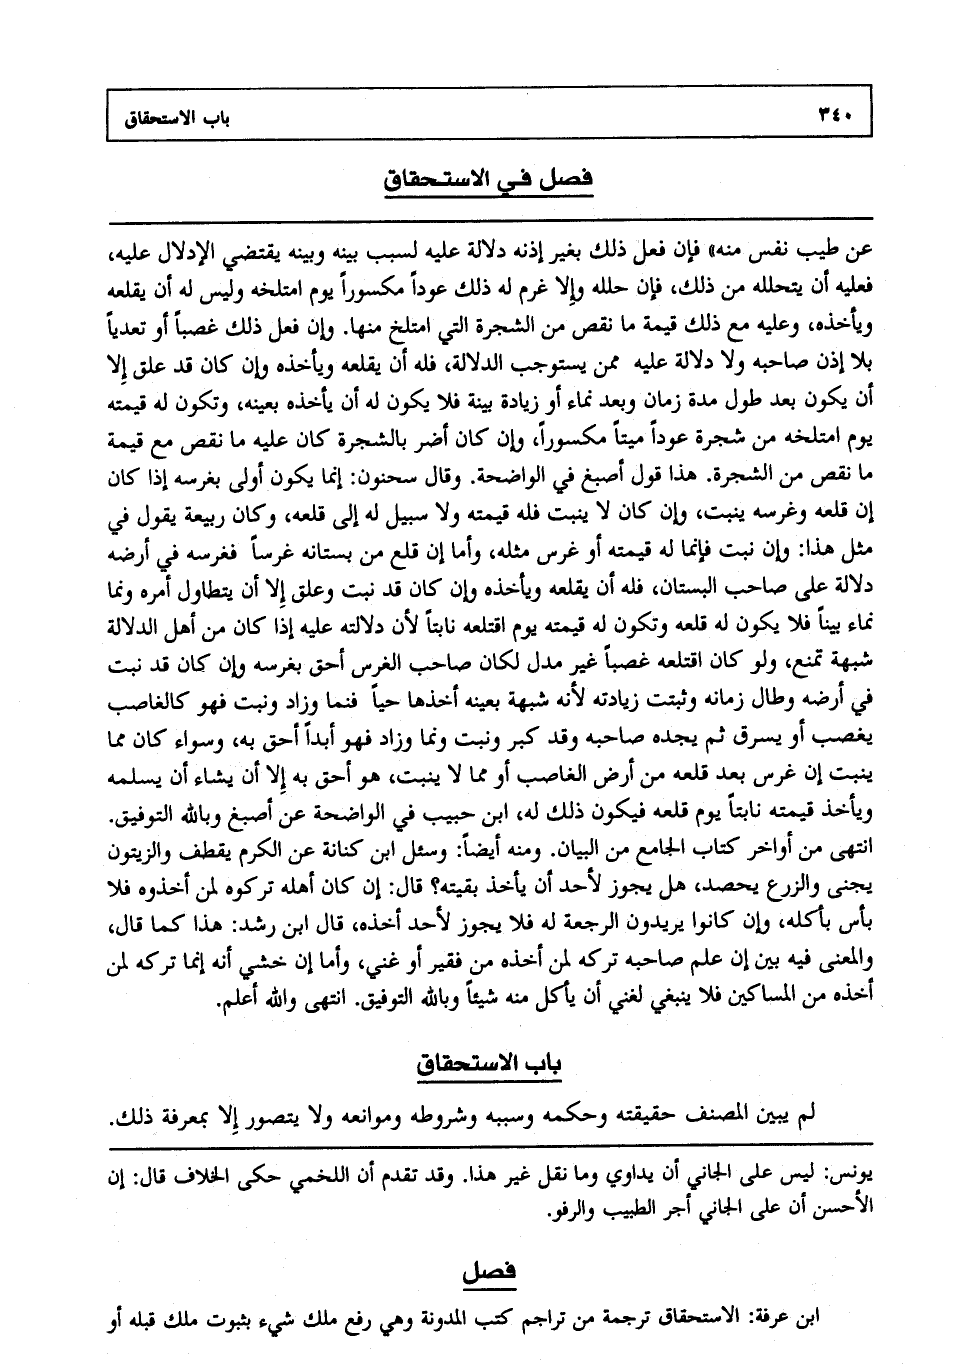 ٣٤٠ باب الاستحقاق
فصل في الاستحقاق
عن طيب نفس منه» فإن فعل ذلك بغير إذنه دلالة عليه لسبب بينه وبينه يقتضي الإدلال عليه،
فعليه أن يتحلله من ذلك، فإن حلله وإلا غرم له ذلك عوداً مكسوراً يوم امتلخه وليس له أن يقلعه
ويأخذه، وعليه مع ذلك قيمة ما نقص من الشجرة التي امتلخ منها. وإن فعل ذلك غصباً أو تعدياً
بلا إذن صاحبه ولا دلالة عليه ممن يستوجب الدلالة، فله أن يقلعه ويأخذه وإن كان قد علق إلا
أن يكون بعد طول مدة زمان وبعد نماء أو زيادة بينة فلا يكون له أن يأخذه بعينه، وتكون له قيمته
يوم امتلخه من شجرة عوداً ميتاً مكسوراً، وإن كان أضر بالشجرة كان عليه ما نقص مع قيمة
ما نقص من الشجرة. هذا قول أصبغ في الواضحة. وقال سحنون: إنما يكون أولى بغرسه إذا كان
إن قلعه وغرسه ينبت، وإن كان لا ينبت فله قيمته ولا سبيل له إلى قلعه، وكان ربيعة يقول في
مثل هذا: وإن نبت فإنما له قيمته أو غرس مثله، وأما إن قلع من بستانه غرساً فغرسه في أرضه
دلالة على صاحب البستان، فله أن يقلعه ويأخذه وإن كان قد نبت وعلق إلا أن يتطاول أمره ونما
نماء بيناً فلا يكون له قلعه وتكون له قيمته يوم اقتلعه نابتاً لأن دلالته عليه إذا كان من أهل الدلالة
شبهة تمنع، ولو كان اقتلعه غصباً غير مدل لكان صاحب الغرس أحق بغرسه وإن كان قد نبت
في أرضه وطال زمانه وثبتت زيادته لأنه شبهة بعينه أخذها حياً فنما وزاد ونبت فهو كالغاصب
يغصب أو يسرق ثم يجده صاحبه وقد كبر ونبت ونما وزاد فهو أبداً أحق به، وسواء كان مما
ينبت إن غرس بعد قلعه من أرض الغاصب أو مما لا ينبت، هو أحق به إلا أن يشاء أن يسلمه
ويأخذ قيمته نابتاً يوم قلعه فيكون ذلك له، ابن حبيب في الواضحة عن أصبغ وبالله التوفيق.
انتهى من أواخر كتاب الجامع من البيان. ومنه أيضاً: وسئل ابن كنانة عن الكرم يقطف والزيتون
يجنى والزرع يحصد، هل يجوز لأحد أن يأخذ بقيته؟ قال: إن كان أهله تركوه لمن أخذوه فلا
بأس بأكله، وإن كانوا يريدون الرجعة له فلا يجوز لأحد أخذه، قال ابن رشد: هذا كما قال،
والمعنى فيه بين إن علم صاحبه تركه لمن أخذه من فقير أو غني، وأما إن خشي أنه إنما تركه لمن
أخذه من المساكين فلا ينبغي لغني أن يأكل منه شيئاً وبالله التوفيق. انتهى والله أعلم.
باب الاستحقاق
لم يبين المصنف حقيقته وحكمه وسببه وشروطه وموانعه ولا يتصور إلا بمعرفة ذلك.
يونس: ليس على الجاني أن يداوي وما نقل غير هذا. وقد تقدم أن اللخمي حكى الخلاف قال: إن
الأحسن أن على الجاني أجر الطبيب والرفو.
فصل
ابن عرفة: الاستحقاق ترجمة من تراجم كتب المدونة وهي رفع ملك شيء بثبوت ملك قبله أو